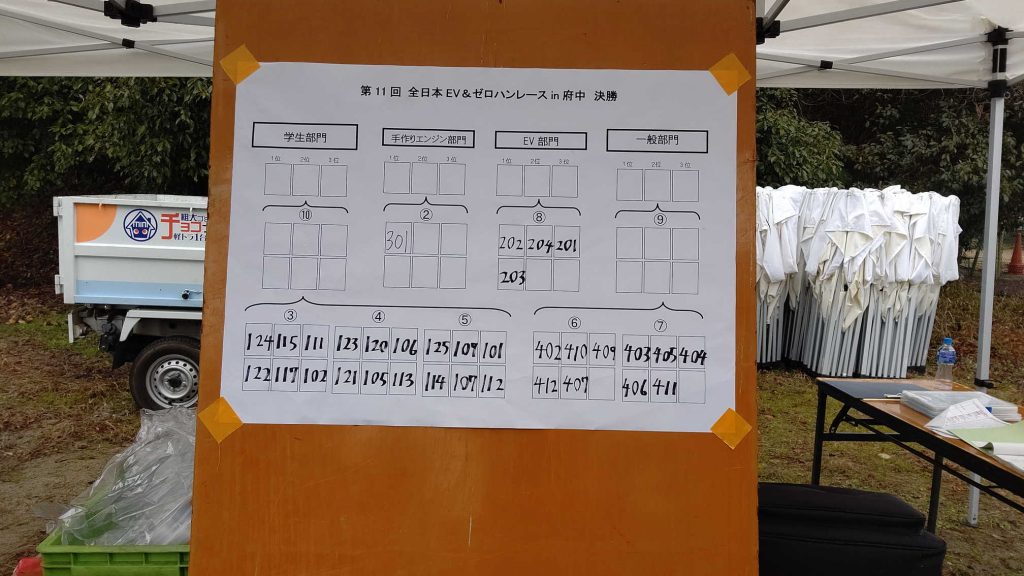 第11回 全日本EV＆ゼロハンレース in 府中 決勝
学生部門 手作りエンジン部門 EV部門 一般部門
1位 2位 3位 1位 2位 3位 1位 2位 3位 1位 2位 3位
⑩ ② ⑧ ⑨
301 202 204 201
203
③ ④ ⑤ ⑥ ⑦
124 115 111 123 120 106 125 109 101 402 410 409 403 405 404
122 117 102 121 105 113 114 107 112 412 407 406 411
粗大
チョコ
軽トラ1台
mini